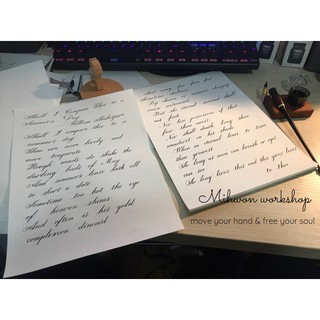 Shall I Compare Thee to a
Summer's Day
William Shakespeare
Shall I compare thee to a
summer's day
Thou art more lovely and
more temperate
Rough winds do shake the
darling buds of May
And summer's lease hath all
to short a date
Sometime too hot the eye
of heaven shines
And often is his gold
complexion dimm'd
shall
not fade
Nor lose possession of that
fair thou
Nor shall death brag thou
wander'st in his shade
When in eternal lines to time
thou growest
So long as men can breathe or eyes
can see
So long lives this and this gives lives
to thee
Mihwon workshop
move your hand & free your soul